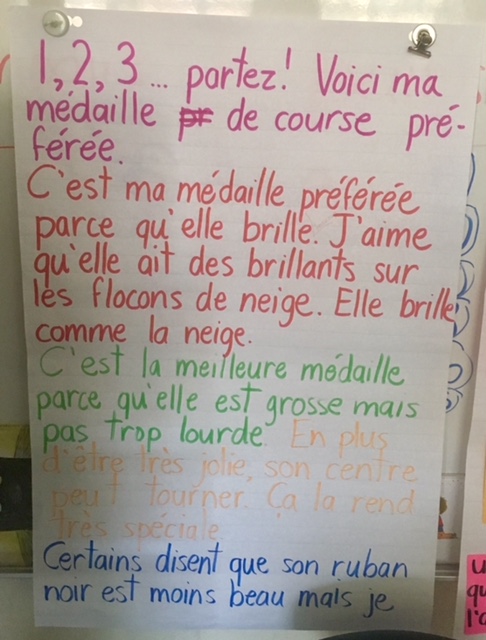 1, 2, 3 ... partez! Voici ma
médaille pr de course pré-
férée.
C'est ma médaille préférée
parce qu'elle brille. J'aime
qu'elle ait des brillants sur
les flocons de neige. Elle brille
comme la neige.
C'est la meilleure médaille
parce qu'elle est grosse mais
pas trop lourde. En plus
d'être très jolie, son centre
peut tourner. Ça la rend
très spéciale.
Certains disent que son ruban
noir est moins beau mais je
u
qu
l'a